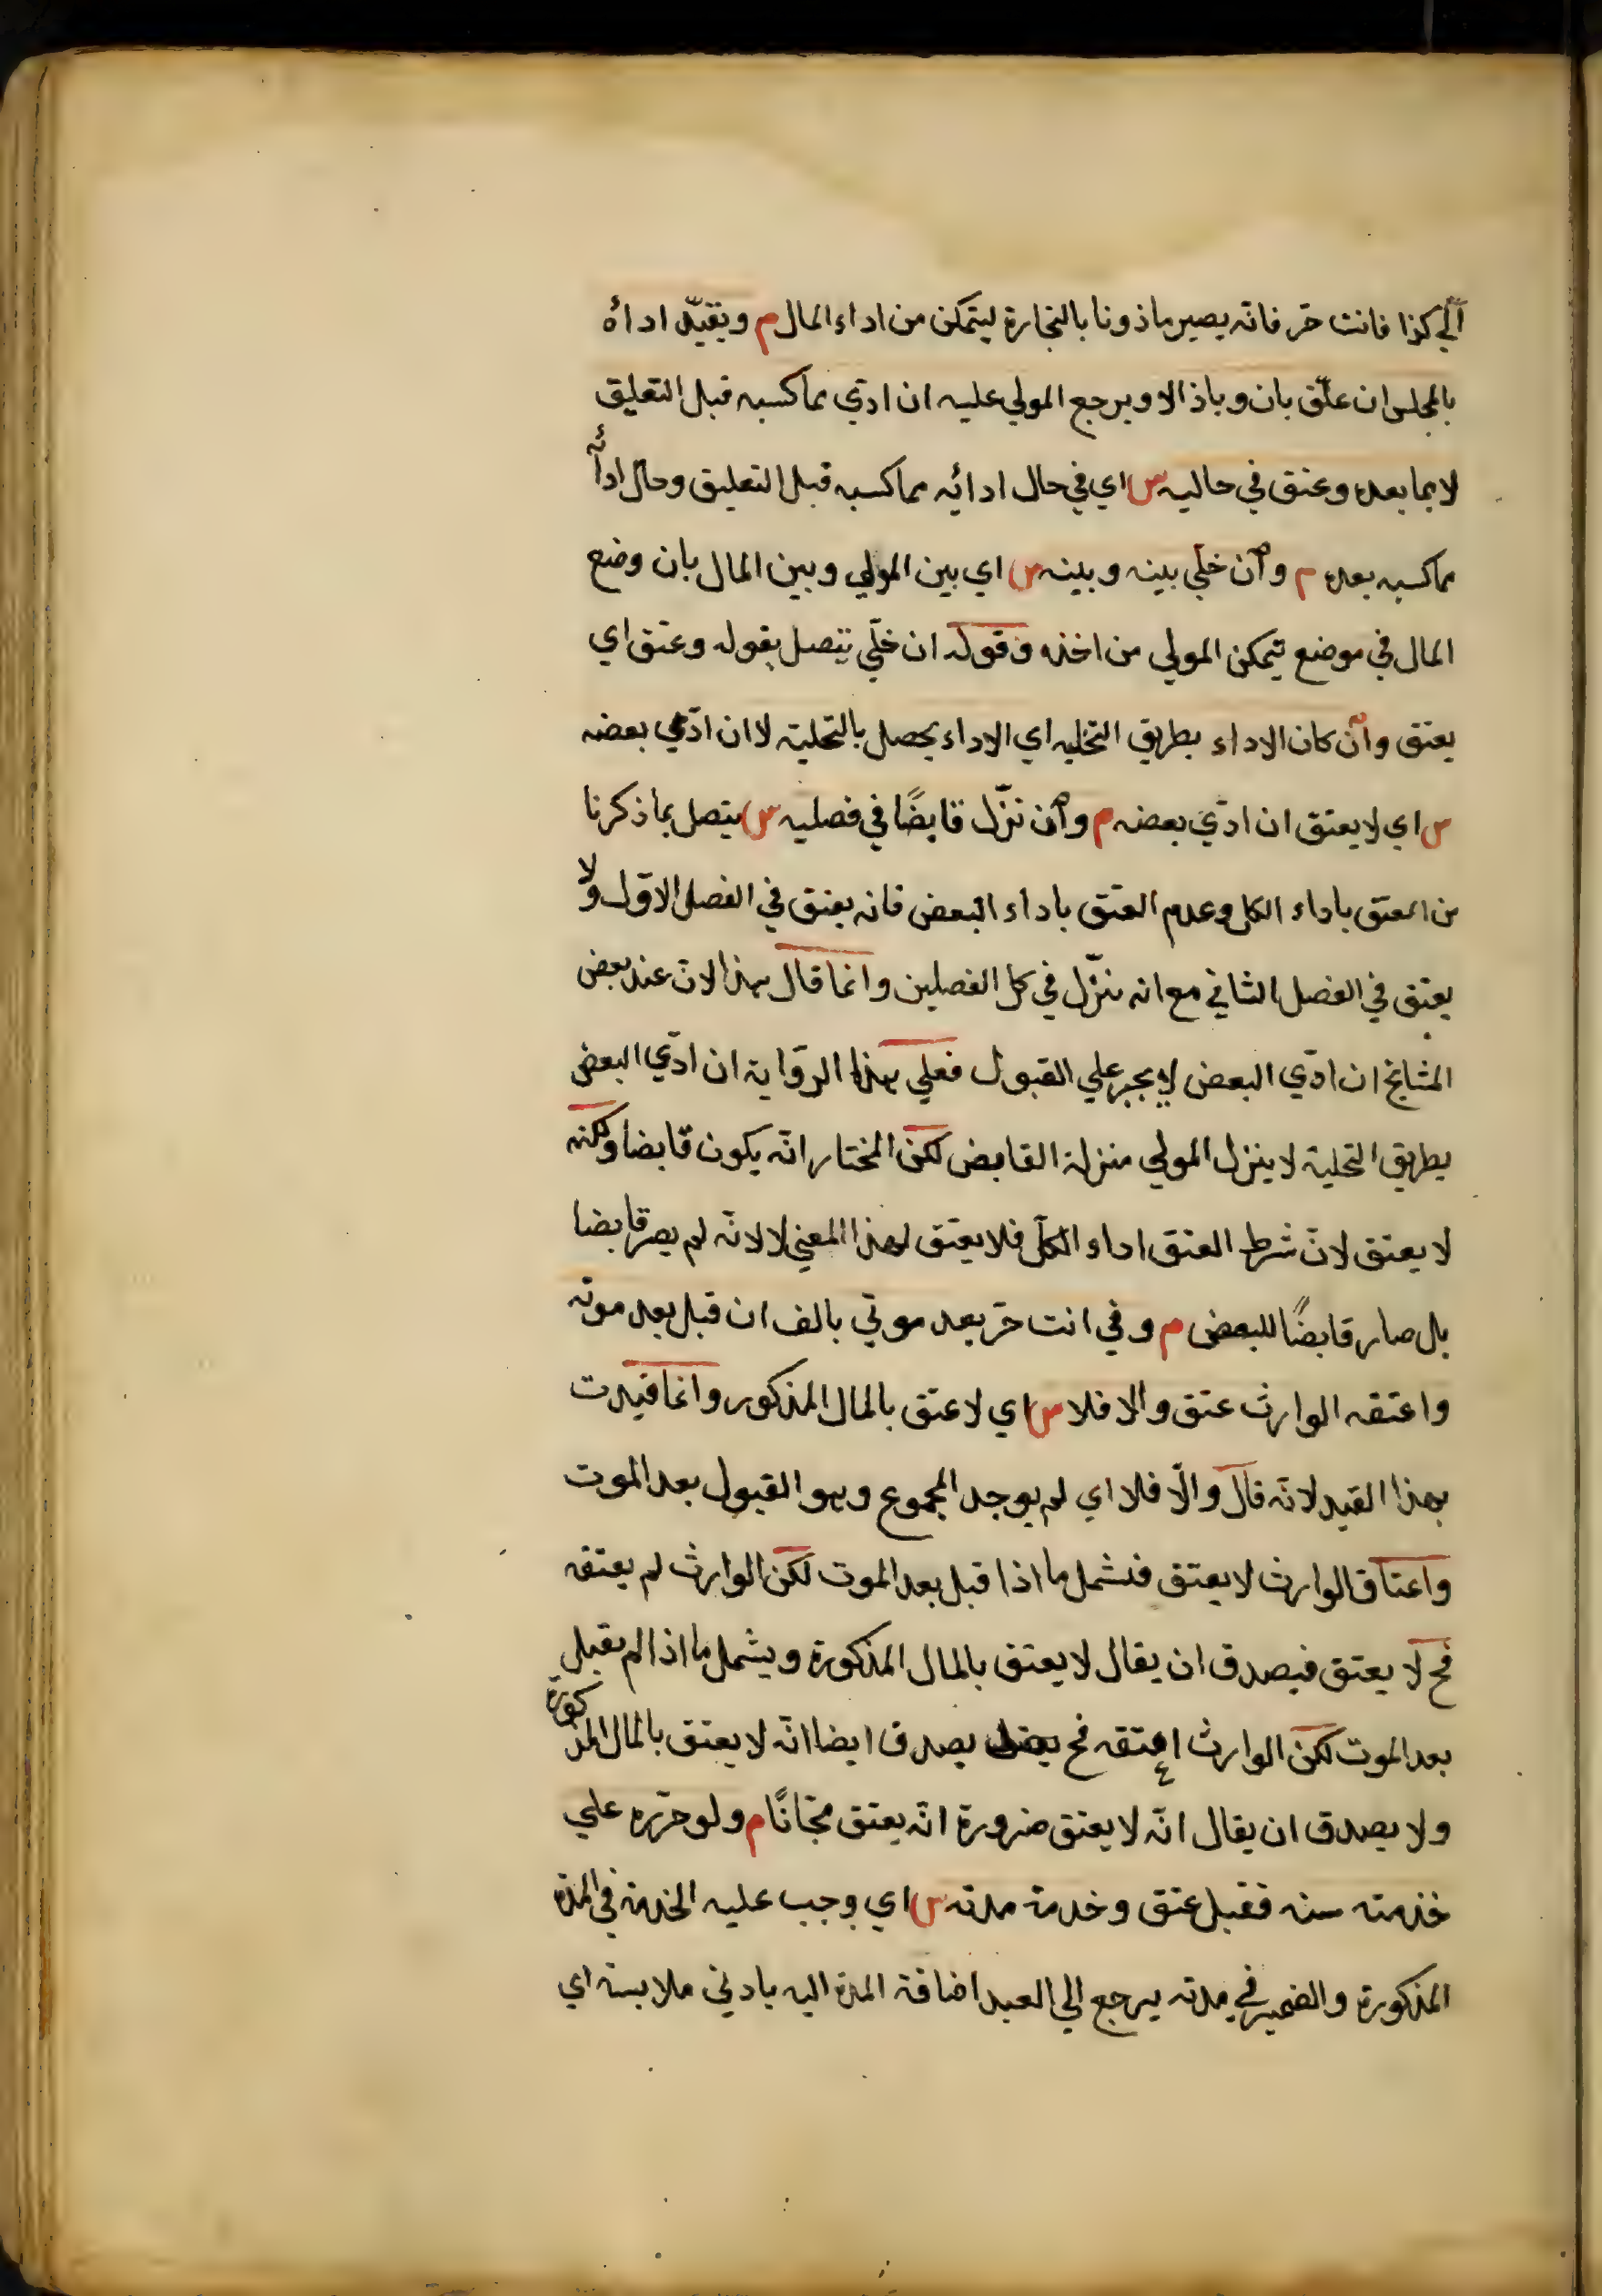 الي كذا فانت حر فانه يصير ماذونا بالتجارة ليتمكن من اداء المال م ويقيّد اداؤه
بالمجلس ان علّق بان وباذا لا ويرجع المولي عليه ان ادّي مما كسبه قبل التعليق
لا بما بعده وعتق في حاليه س اي في حال ادائه مما كسبه قبل التعليق وحال ادائه
مما كسبه بعده م وان خلّي بينه وبينه س اي بين المولي وبين المال بان وضع
المال في موضع يتمكن المولي من اخذه وقوله ان خلّي يتصل بقوله وعتق اي
يعتق وان كان الاداء بطريق التخليه اي الاداء يحصل بالتخلية لا ان ادّي بعضه
س اي لا يعتق ان ادّي بعضه م وان نزّل قابضًا في فصليه س يتصل بما ذكرنا
من العتق باداء الكل وعدم العتق باداء البعض فانه يعتق في الفصل الاوّل ولا
يعتق في الفصل الثاني مع انه ينزّل في كل الفصلين وانما قال هذا لان عند بعض
المشايخ ان ادّي البعض لا يجبر علي القبول فعلي هذا الرّواية ان ادّي البعض
بطريق التخلية لا ينزل المولي منزلة القابض لكن المختار انّه يكون قابضا ولكنه
لا يعتق لانّ شرط العتق اداء الكلّ فلا يعتق لهذا المعني لا لانّه لم يصر قابضا
بل صار قابضًا للبعض م وفي انت حرّ بعد موتي بالف ان قبل بعد موته
واعتقه الوارث عتق والا فلا س اي لا عتق بالمال المذكور وانما قيدت
بهذا القيد لانّه قال والّا فلا اي لم يوجد المجموع وهو القبول بعد الموت
واعتاق الوارث لا يعتق فيشمل ما اذا قبل بعد الموت لكن الوارث لم يعتقه
فح لا يعتق فيصدق ان يقال لا يعتق بالمال المذكورة ويشمل ما اذا لم يقبل
بعد الموت لكن الوارث اعتقه فح يصدق ايضا انّه لا يعتق بالمال المذكورة
ولا يصدق ان يقال انّه لا يعتق ضرورة انّه يعتق مجّانًا م ولو حرّره علي
خدمته سنه فقبل عتق وخدمة مدته س اي وجب عليه الخدمة في المدة
المذكورة والضمير في مدته يرجع الي العبد اضافة المدة اليه بادني ملابسة اي